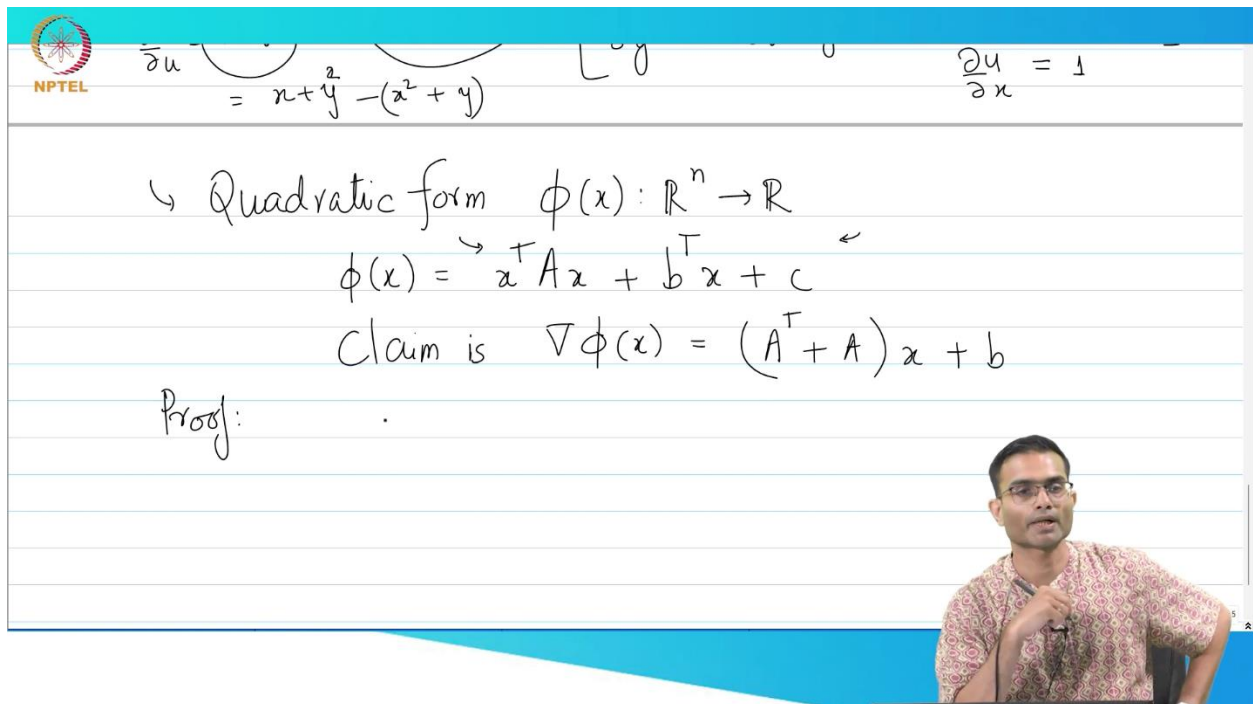 NPTEL
∂u
= x + y² − (x² + y)
∂u/∂x = 1
↳ Quadratic form ϕ(x) : ℝⁿ → ℝ
ϕ(x) = xᵀAx + bᵀx + c
Claim is ∇ϕ(x) = (Aᵀ + A)x + b
Proof:
5